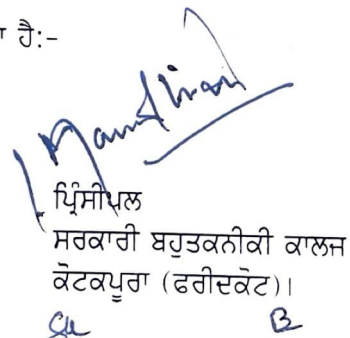 ਹੈ:-
ਪ੍ਰਿੰਸੀਪਲ
ਸਰਕਾਰੀ ਬਹੁਤਕਨੀਕੀ ਕਾਲਜ
ਕੋਟਕਪੂਰਾ (ਫਰੀਦਕੋਟ)।